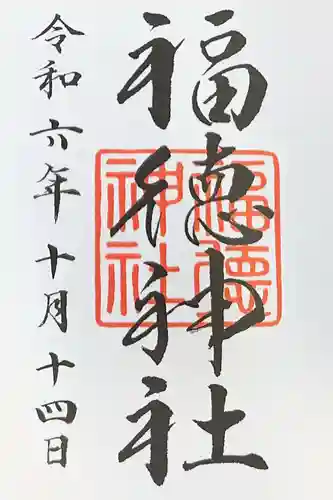 福徳神社
福徳
神社
令和六年十月十四日